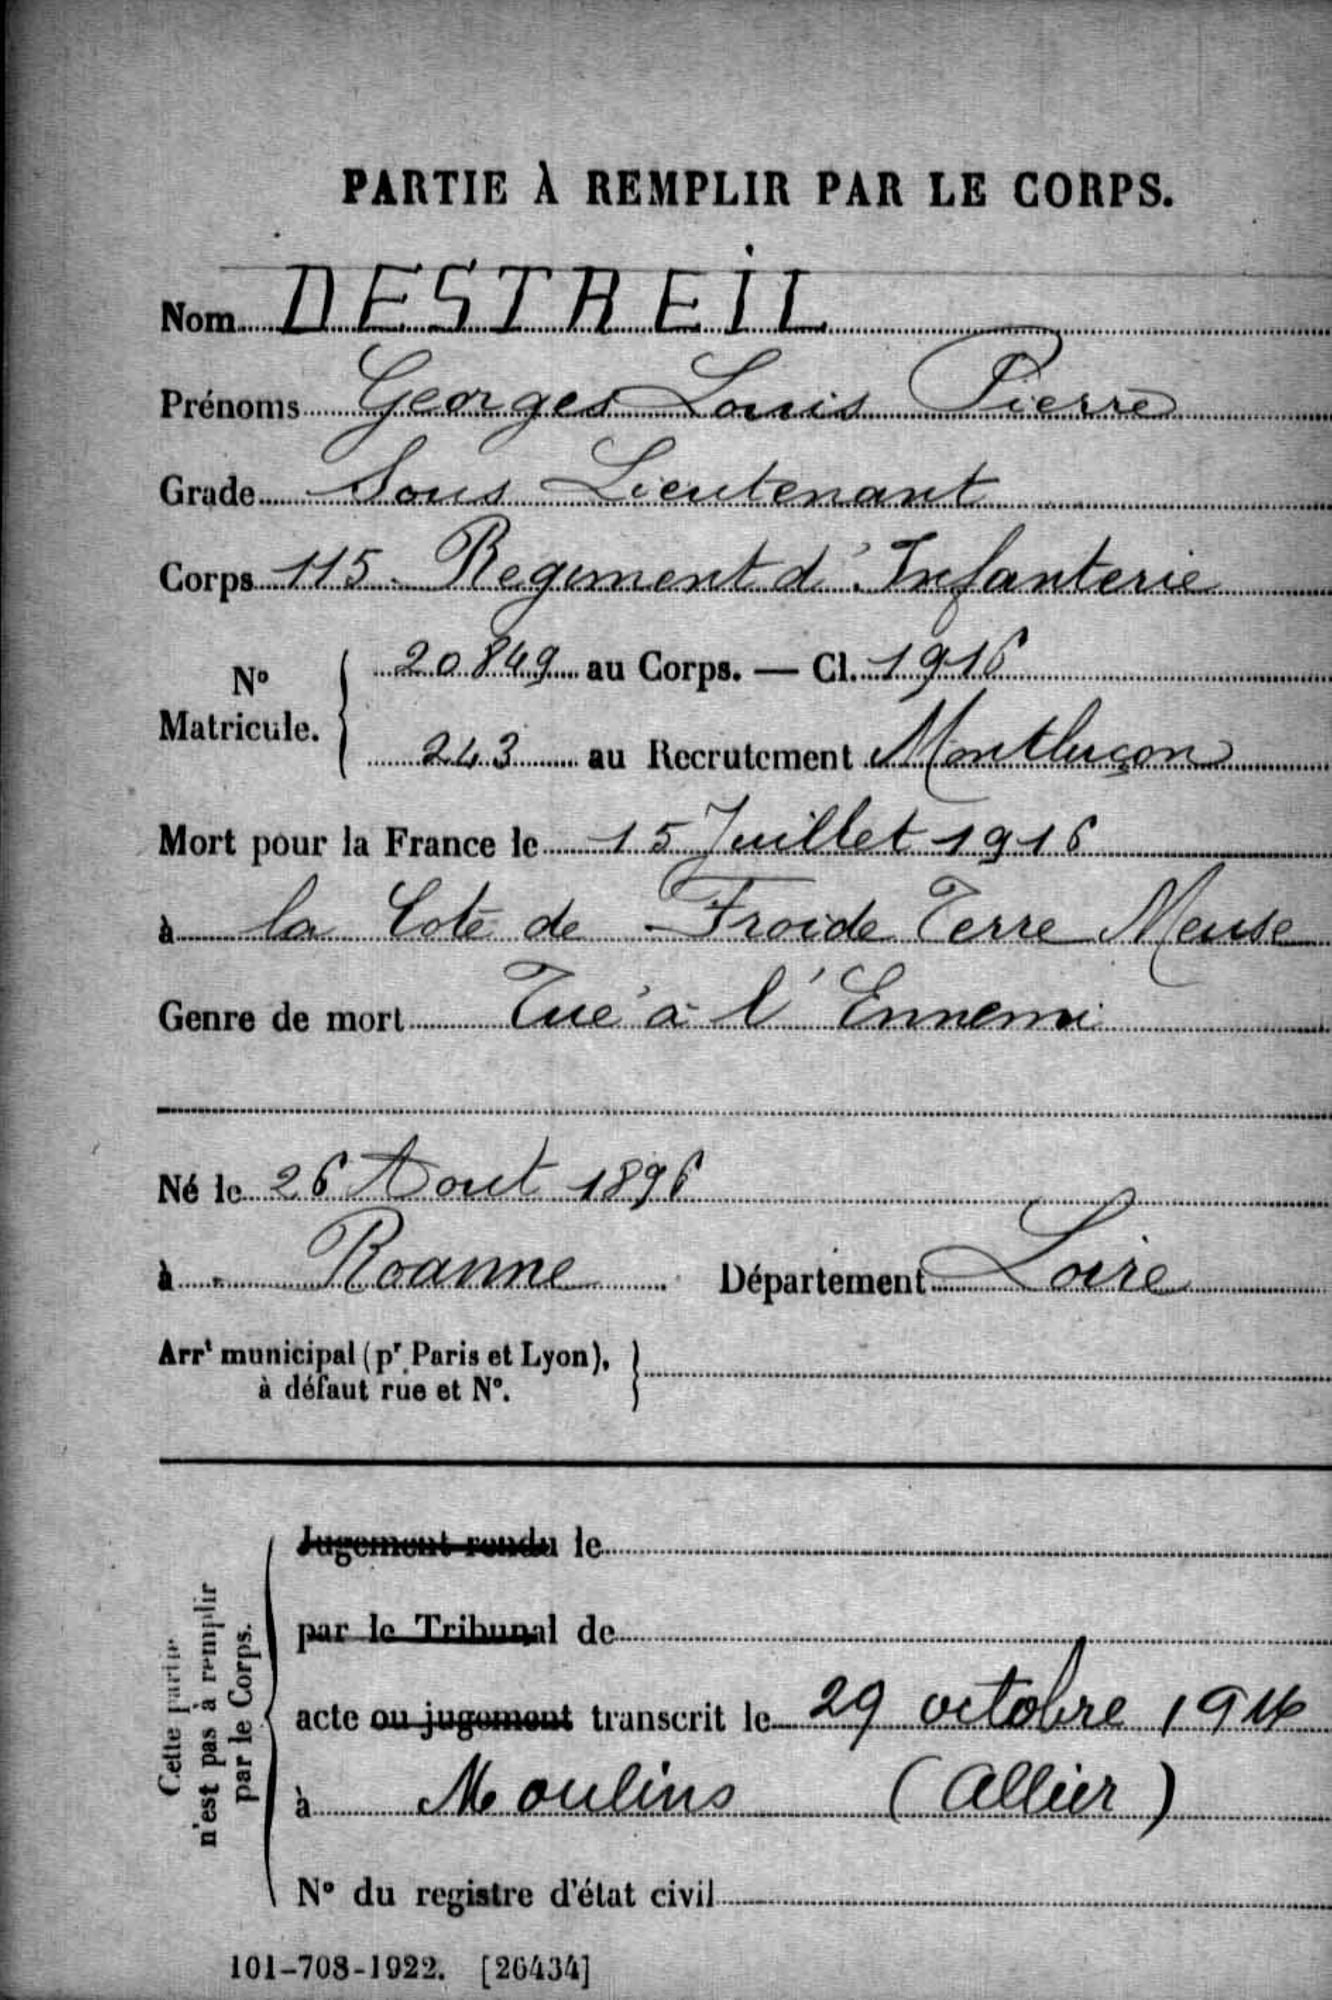 PARTIE À REMPLIR PAR LE CORPS.
Nom DESTREIL
Prénoms Georges Louis Pierre
Grade Sous Lieutenant
Corps 115 Regiment d'Infanterie
N° Matricule. 20849 au Corps. — Cl. 1916
243 au Recrutement Montluçon
Mort pour la France le 15 Juillet 1916
à la Cote de Froide Terre Meuse
Genre de mort Tué à l'Ennemi
Né le 26 Aout 1896
à Roanne Département Loire
Arrt municipal (pr Paris et Lyon),
à défaut rue et N°.
Cette partie
n'est pas à remplir
par le Corps.
Jugement rendu le
par le Tribunal de
acte ou jugement transcrit le 29 octobre 1916
à Moulins (Allier)
N° du registre d'état civil
101-708-1922. [26434]